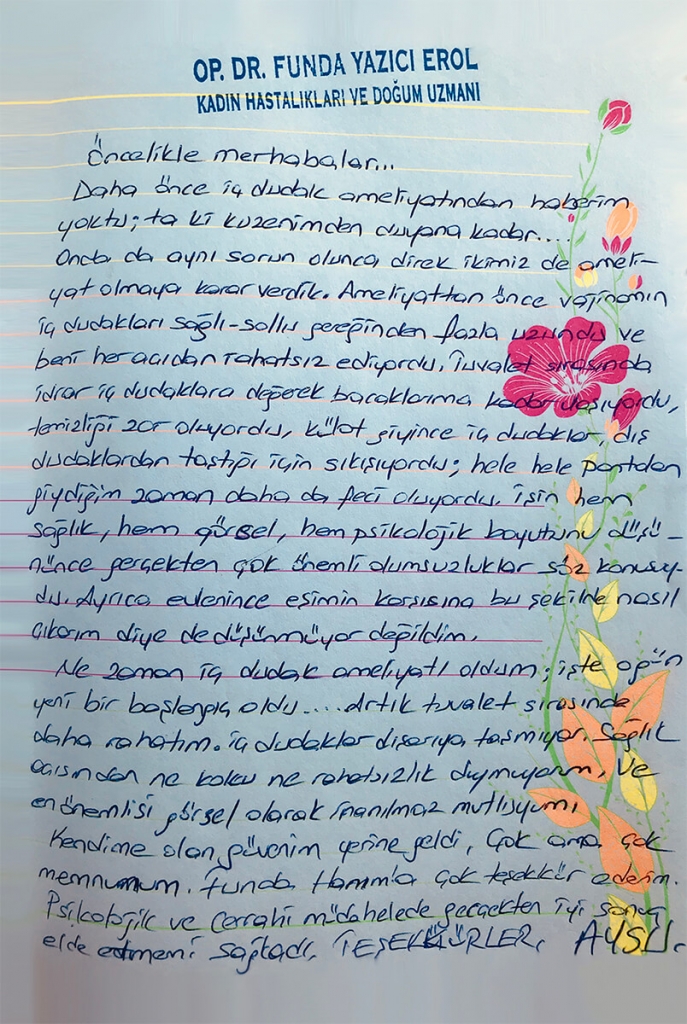 OP. DR. FUNDA YAZICI EROL
KADIN HASTALIKLARI VE DOĞUM UZMANI
Öncelikle merhabalar...
Daha önce iç dudak ameliyatından haberim
yoktu; ta ki kuzenimden duyana kadar....
Onda da aynı sorun olunca direk ikimiz de ameli-
yat olmaya karar verdik. Ameliyattan önce vajinamın
iç dudakları sağlı-sollu gereğinden fazla uzundu ve
beni her açıdan rahatsız ediyordu, Tuvalet sırasında
idrar iç dudaklara değerek bacaklarıma kadar ulaşıyordu,
temizliği zor oluyordu, külot giyince iç dudaklar, dış
dudaklardan taştığı için sıkışıyordu; hele hele pantolon
giydiğim zaman daha da feci oluyordu. İşin hem
sağlık, hem görsel, hem psikolojik boyutunu düşü-
nünce gerçekten çok önemli olumsuzluklar söz konusuy-
du. Ayrıca evlenince eşimin karşısına bu şekilde nasıl
çıkarım diye de düşünmüyor değildim.
Ne zaman iç dudak ameliyatı oldum; işte o gün
yeni bir başlangıç oldu.... Artık tuvalet sırasında
daha rahatım. İç dudaklar dışarıya taşmıyor. Sağlık
açısından ne koku ne rahatsızlık duymuyorum, ve
en önemlisi görsel olarak inanılmaz mutluyum,
Kendime olan güvenim yerine geldi, Çok ama çok
memnunum. Funda Hanım'a çok teşekkür ederim.
Psikolojik ve cerrahi müdahelede gerçekten iyi sonuç
elde etmemi sağladı, TEŞEKKÜRLER, AYSU.